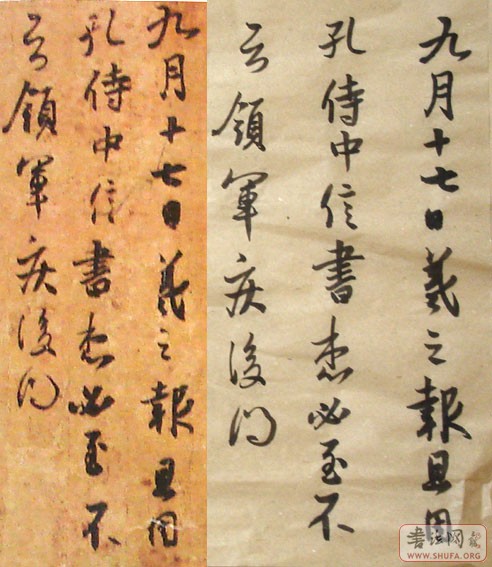 九月十七日羲之報且因
孔侍中信書想必至不
知領軍疾後問
九月十七日羲之報且因
孔侍中信書想必至不
知領軍疾後問
书法网
WWW.SHUFA.ORG